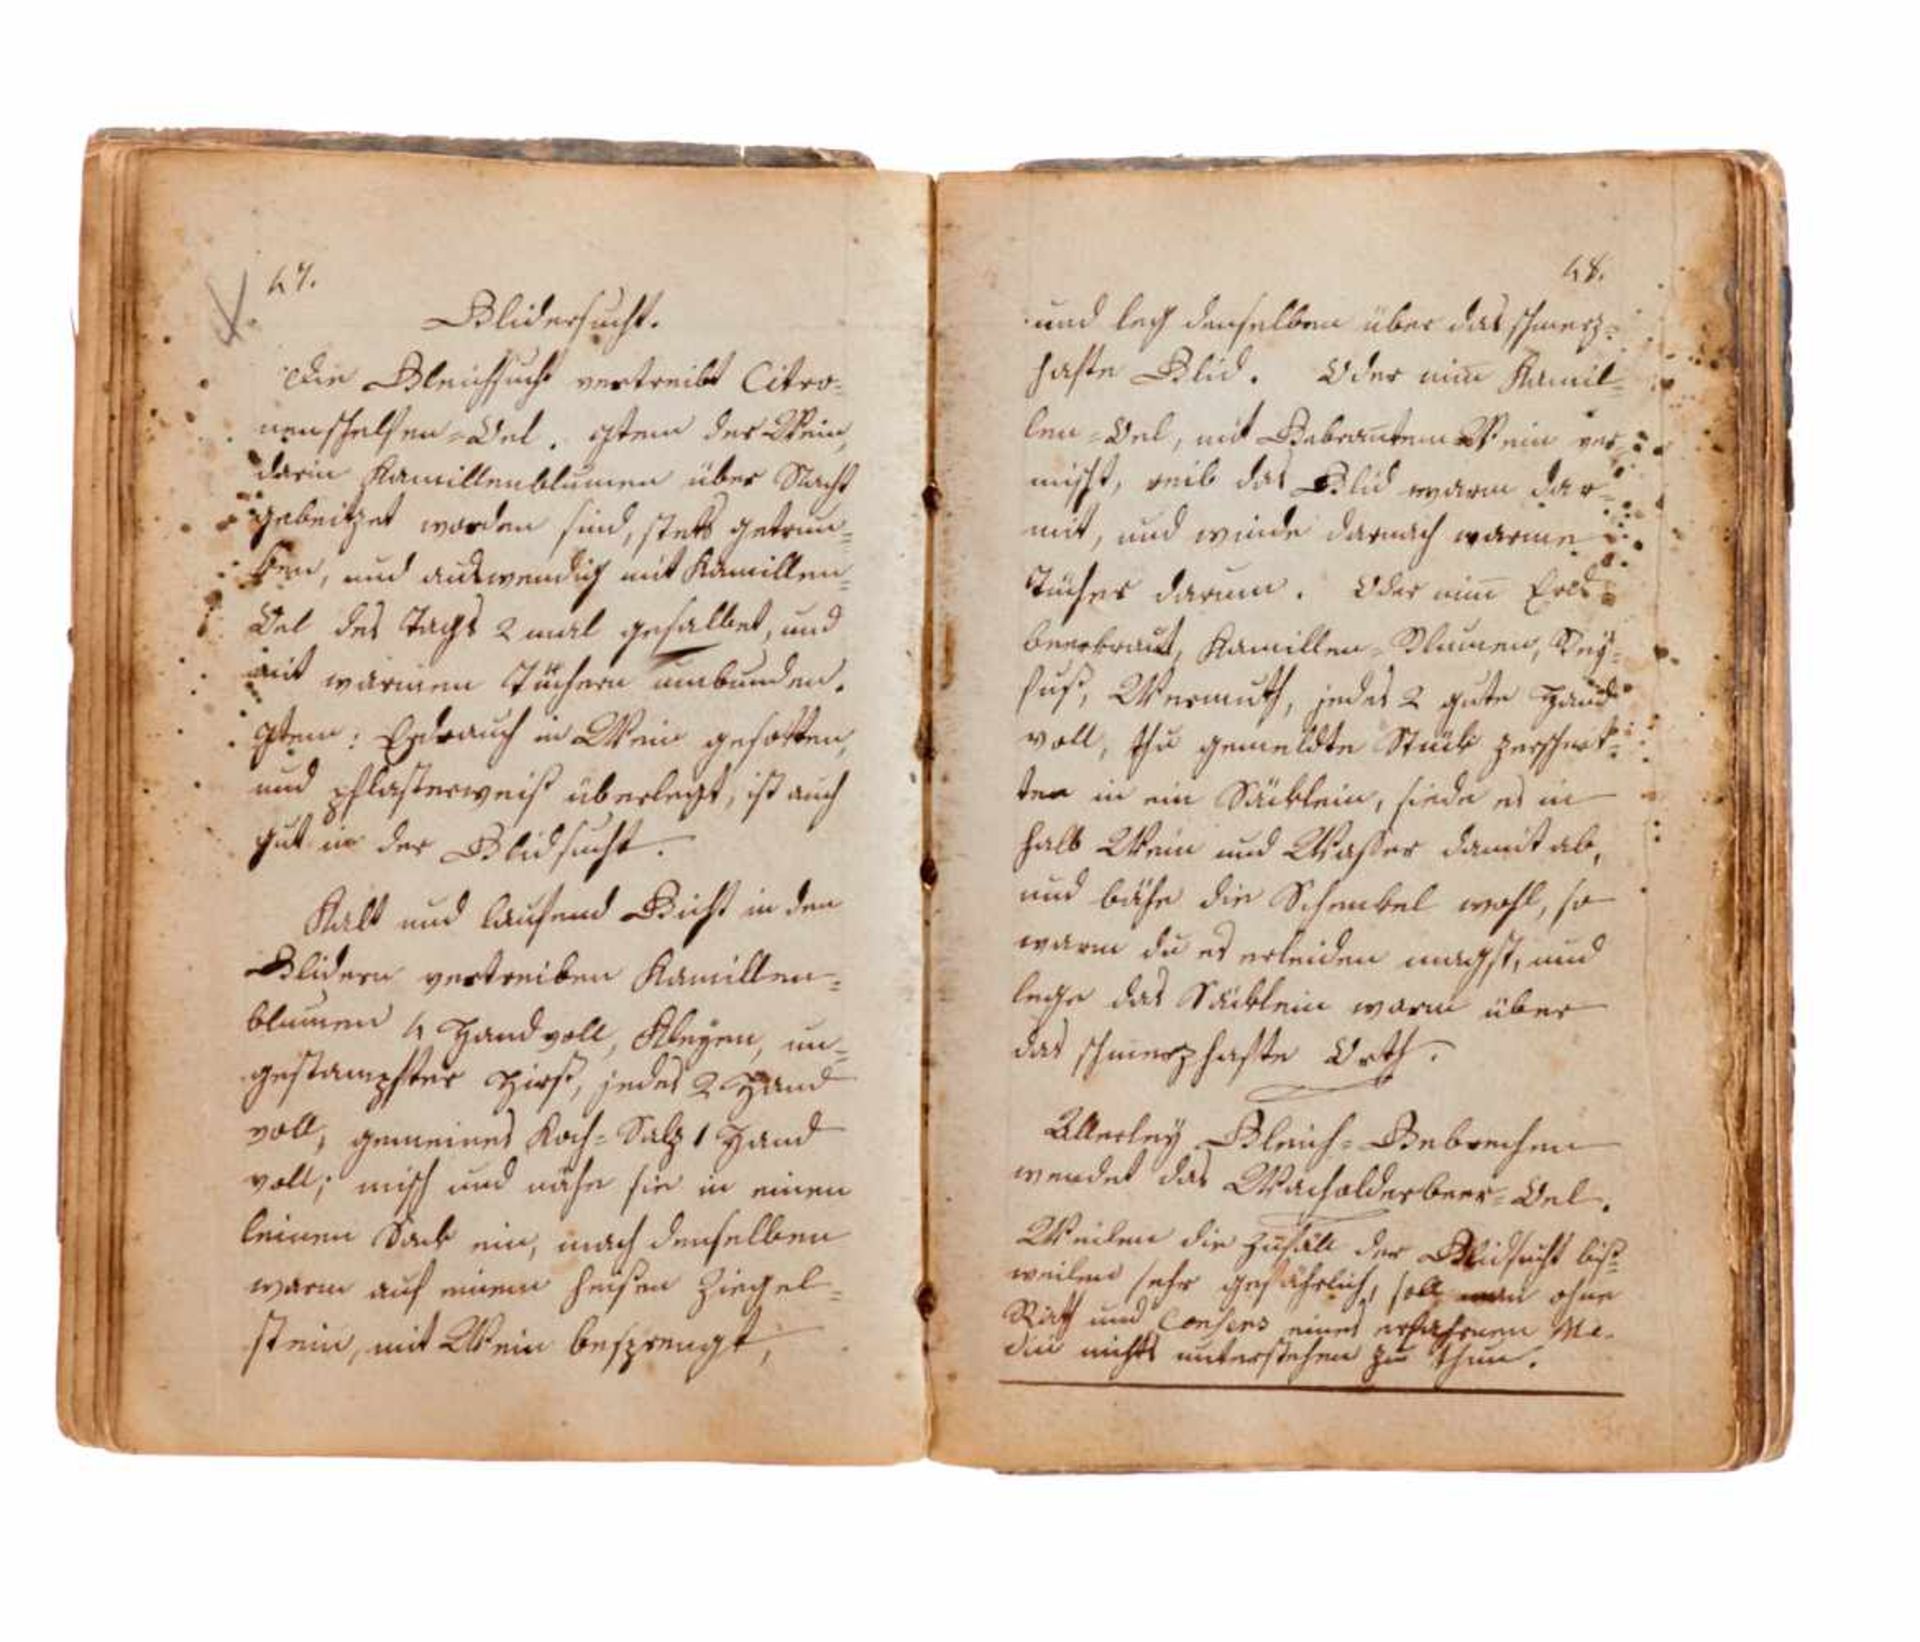 47.
Glidersucht.
Die Gleichsucht vertreibt Citro-
nenschelfen-Oel. Item der Wein,
darin Kamillenblumen über Nacht
gebeitzet worden sind, stets getrun-
ken, und auswendig mit Kamillen-
Oel des Tags 2 mal gesalbet, und
mit warmen Tüchern umbunden.
Item: Erdrauch in Wein gesotten,
und pflasterweiß überlegt, ist auch
gut in der Glidsucht.
Kalt und laufend Gicht in den
Glidern vertreiben Kamillen-
blumen 4 Handvoll, Kleyen, un-
gestampfter Hirß, jedes 2 Hand
voll, gemeines Koch-Salz 1 Hand
voll; misch und nähe sie in einen
leinen Sack ein, mach denselben
warm auf einem heißen Ziegel-
stein, mit Wein besprengt,
48.
und leg denselben über das schmerz-
hafte Glid. Oder nim̄ Kamil-
len-Oel, mit Gebran̄tem Wein ver-
mischt, reib das Glid warm dar-
mit, und winde darnach warme
Tücher darum. Oder nim̄ Erd-
beerkraut, Kamillen-Blumen, Bey-
fuß, Wermuth, jedes 2 gute Hand
voll, thu gemeldte Stück zerschnit-
ten in ein Säcklein, siede es in
halb Wein und Waßer damit ab,
und bähe die Schenkel wohl, so
warm du es erleiden magst, und
lege das Säcklein warm über
das schmerzhafte Orth.
Allerley Gleich-Gebrechen
wendet das Wacholderbeer-Oel.
Weilen die Zufäll der Glidsucht biß-
weilen sehr gefährlich, soll man ohne
Rath und Consens eines erfahrnen Me-
dici nichts unterstehen zu thun.